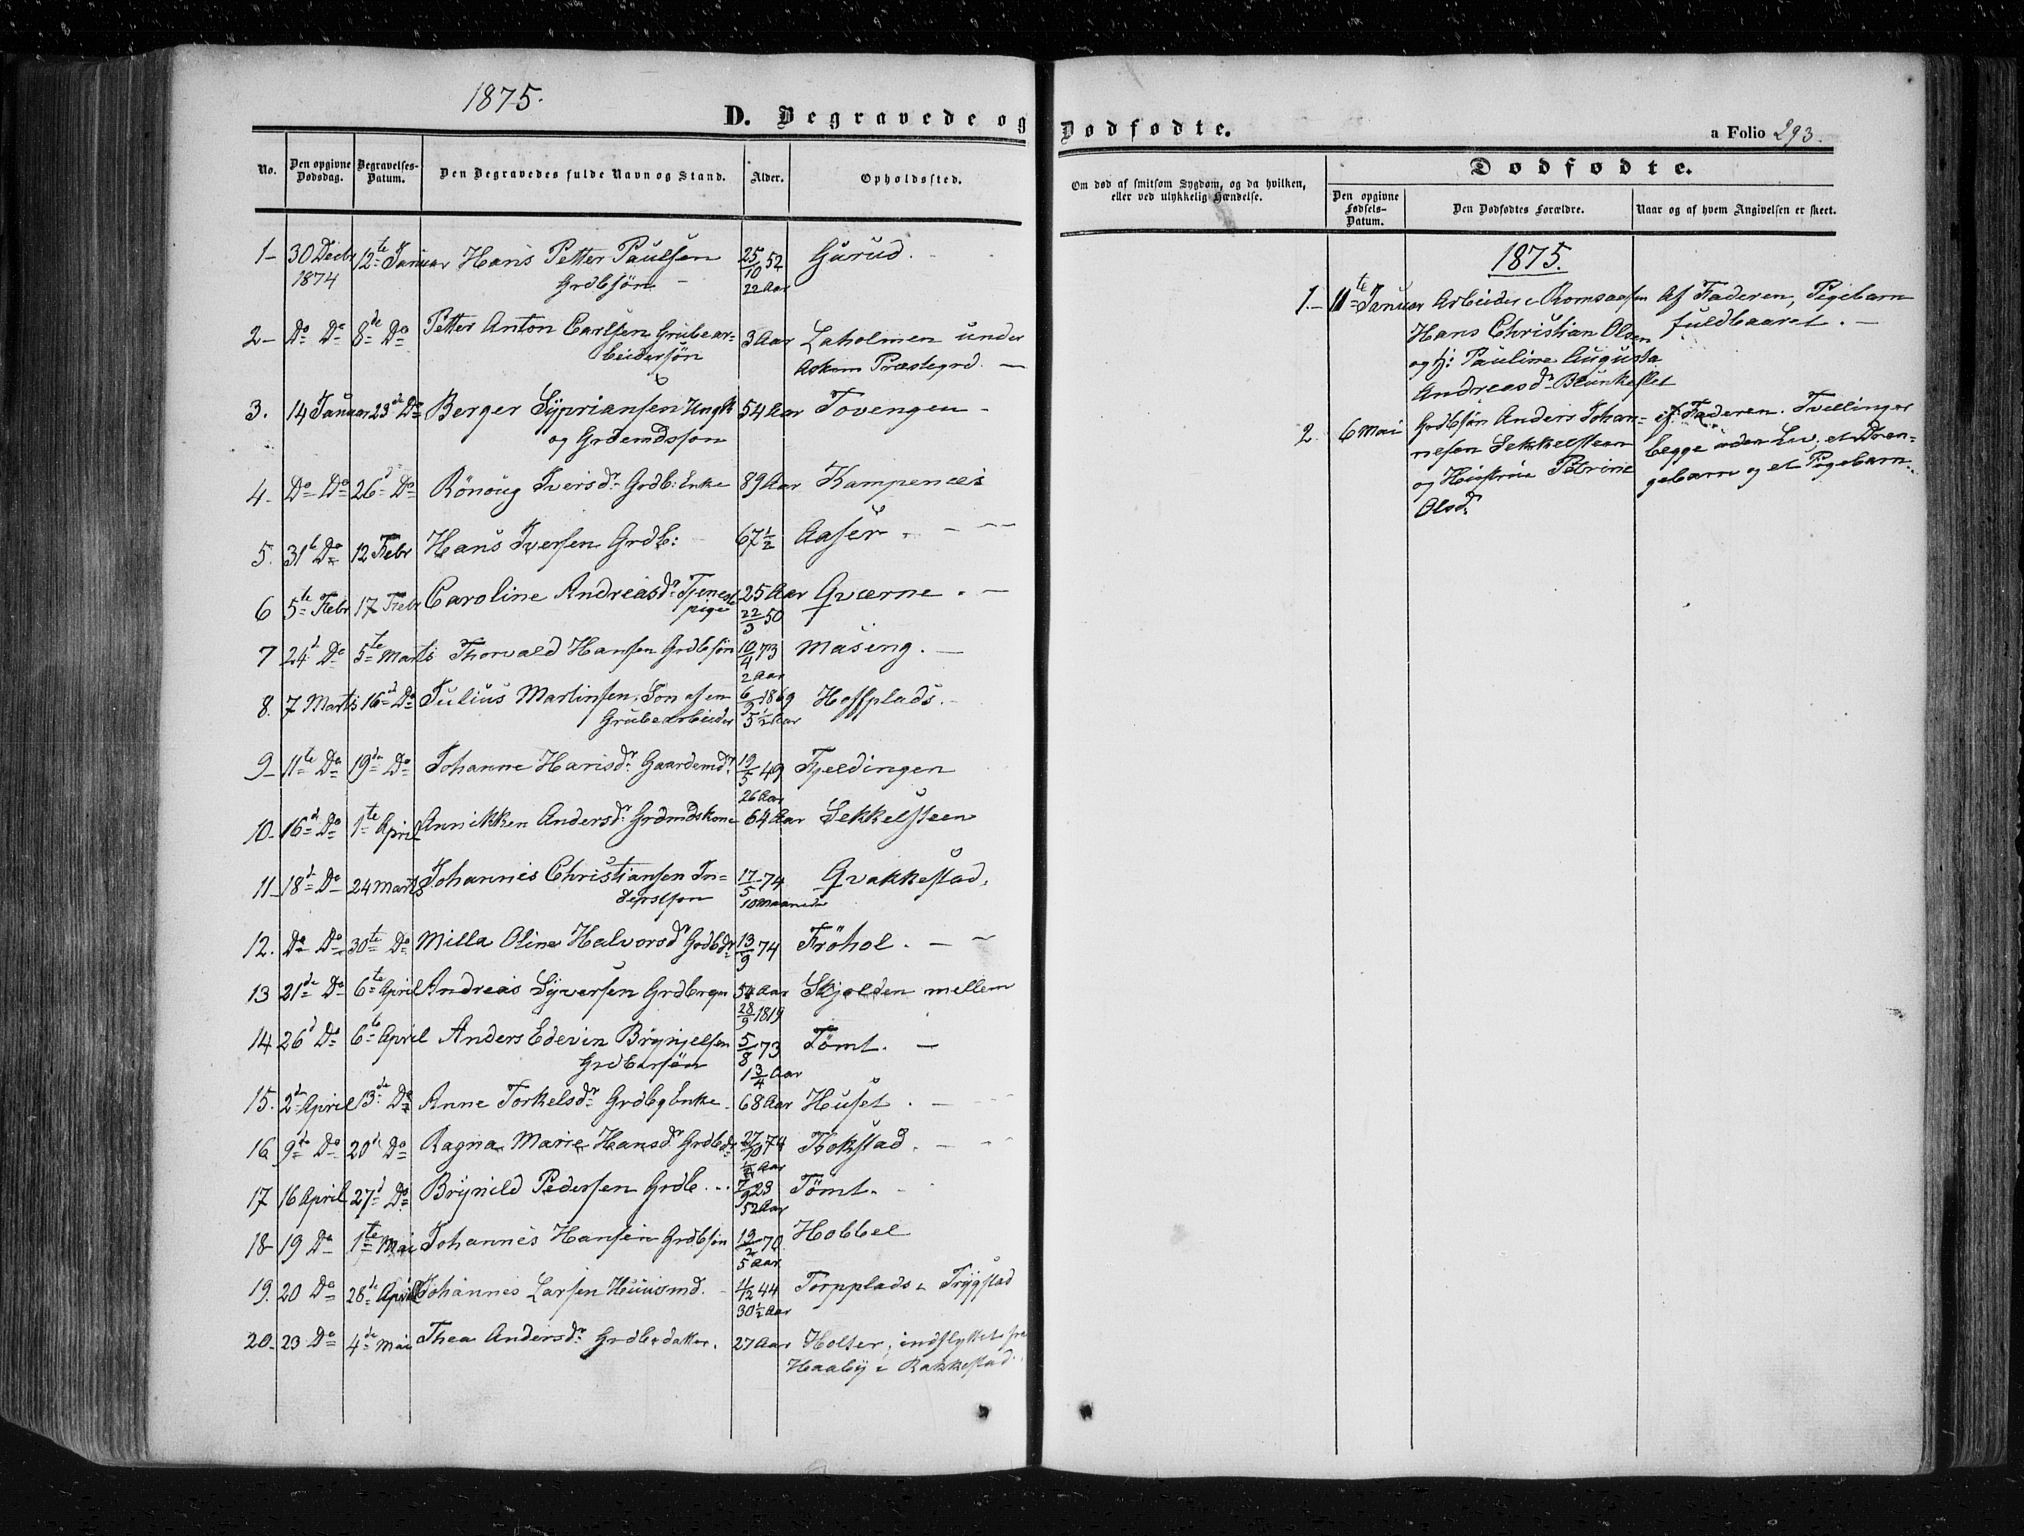 1875.
D. Begravede og Dødfødte.
a Folio 293.
No.
Den opgivne Dødsdag.
Begravelses-Datum.
Den Begravedes fulde Navn og Stand.
Alder.
Opholdssted.
Om død af smitsom Sygdom, og da hvilken,
eller ved ulykkelig Hændelse.
Dødfødte.
Den opgivne Fødsels-Datum.
Den Dødfødtes Forældre.
Naar og af hvem Angivelsen er skeet.
1- 30 Decbr 12te Januar Hans Petter Paulsen 25/10 52 Gurud.
1874 Grdbsön - 22 Aar
2- Do Do 8de Do Petter Anton Carlsen Grubear- 3 Aar Laholmen under
beidersön Askim Præstegrd. -
3. 14 Januar 23de Do Berger Sÿpriansen Ungk 54 Aar Tovengen -
og Grdemdssøn
4. Do Do 26d Do Rönoug Iversdr Grdb: Enke 89 Aar Kampenæs
5. 31te Do 12 Febr Hans Iversen Grdb: 67 1/2 Aaser.
6 5te Febr 17 Febr Caroline Andreasdr Tjeneste 25 Aar Qværne. -
pige 22/3 50
7 24d Do 5te Marts Thorvald Hansen Grdbsön 10/4 73 Måsing. -
2 Aar
8. 7 Marts 16d Do Julius Martinsen, Søn af en 6/9 1869 Hoffplads. -
Grubearbeider 5 1/2 Aar
9- 11te Do 19de Do Johanne Hansdr Gaardemdr 19/5 49 Fjeldingen
26 Aar
10- 16d Do 1te April Annikken Andersdr Grdmdskone 64 Aar Sekkelsteen
11- 18d Do 24 Marts Johannes Christiansen In= 17/5 74 Qvakkestad.
derstsøn 10 Maaneder
12. Do Do 30te Do Milla Oline Halvorsdr Grdbdr 13/9 74 Fröhol. -
13 21de Do 6te April Andreas Syversen Grdbrger 54 Aar Skjolden mellem
28/9 1819
14 26d Do 6te April Anders Edevin Brynjelsen 5/8 73 Tömt. -
Grdbersön 1 3/4 Aar
15. 2den April 13de Do Anne Torkelsdr Grdbg Enke 68 Aar Huset. -
16 9de Do 20d Do Ragna Marie Hansdr Grdbdr 27/10 74 Kokstad. -
1/2 Aar
17 16 April 27d Do Brynild Pedersen Grdb. 7/9 23 Tömt.
52 Aar
18- 19 Do 1te Mai Johannes Hansen Grdbsön 19/2 70 Hobbel
5 Aar
19. 20 Do 28de April Johannes Larsen Huusmd. 4/12 44 Torpplads i Trygstad
30 1/2 Aar
20. 23 Do 4de Mai Thea Andersdr Grdberdatter. 27 Aar Holter, indflyttet fra
Haabÿ i Rakkestad.
1875.
1.- 11te Januar Arbeider i Romsaasen Af Faderen, Pigebarn
Hans Christian Olsen fuldbaaret. -
og H: Pauline Augusta
Andreasdr Blunkeflet
2. 6 Mai Grdbsön Anders Johan- af Faderen. Tvillinger
nesen Sekkelsteen begge uden Liv, et Dren-
og Hustrue Petrine gebarn og et Pigebarn.
Olsdr